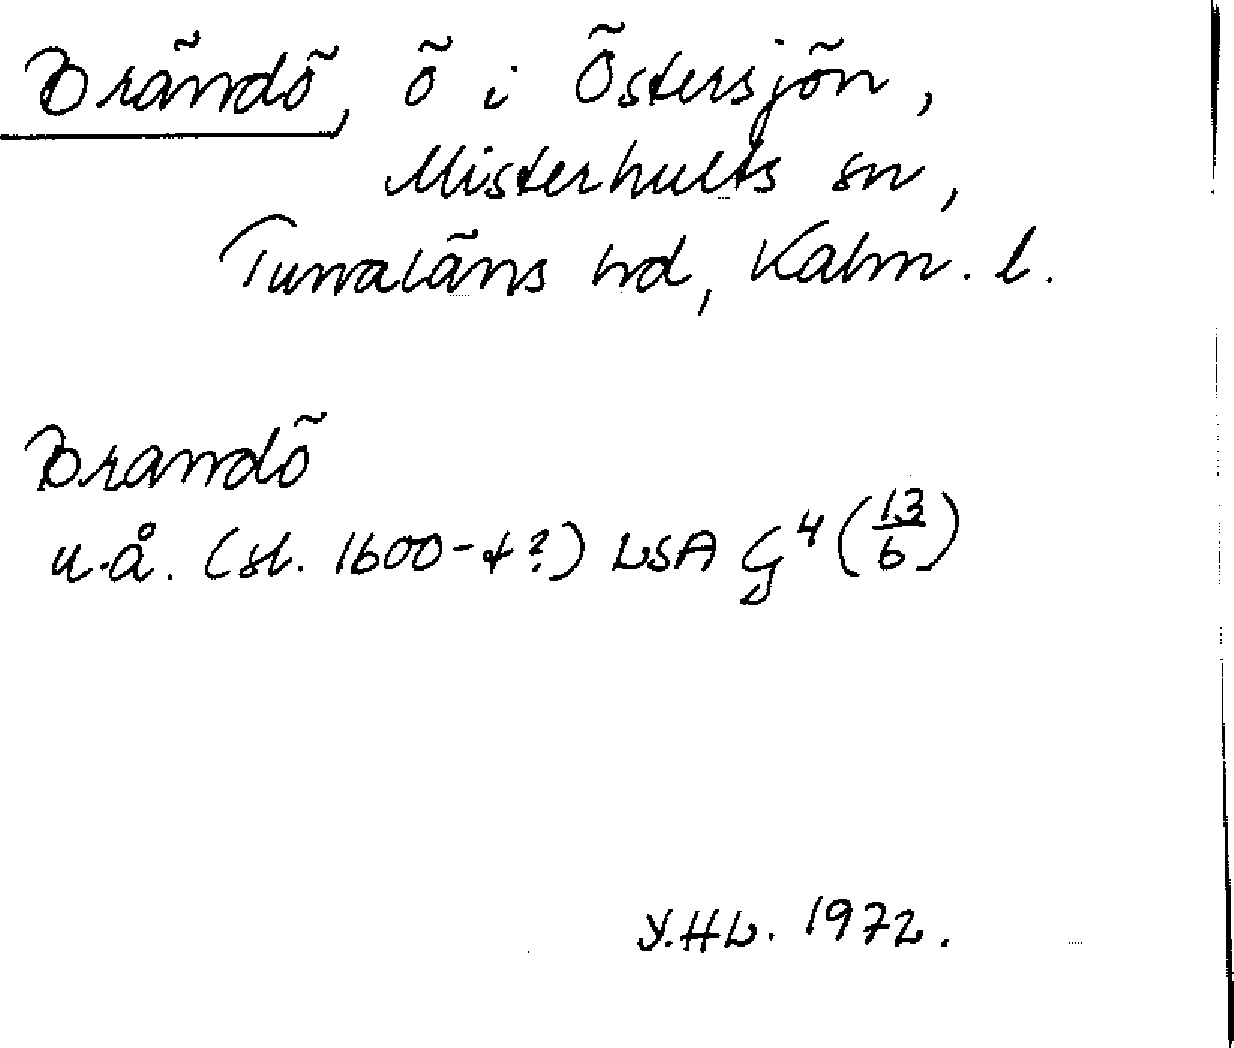 Brändö, ö i Östersjön,
Misterhults sn,
Tunaläns hd, Kalm. l.
Brandö
u.å. (sl. 1600-t?) LSA G⁴ (13/6)
Y.HL. 1972.